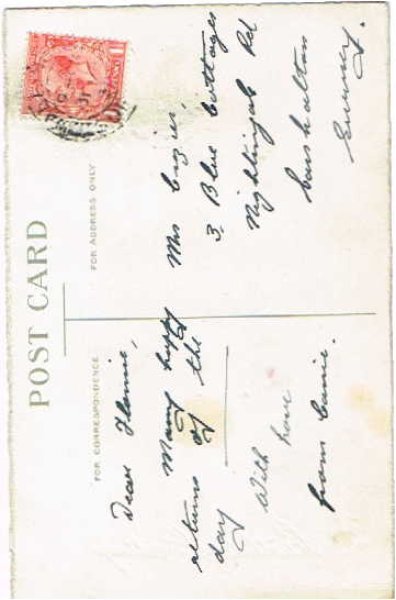 POST CARD
FOR CORRESPONDENCE
Dear Florrie,
Many happy
returns of the
day
With love
from Carrie.
FOR ADDRESS ONLY
Mrs
3 Blue Cottages
Nightingale Rd
Carshalton
Surrey.